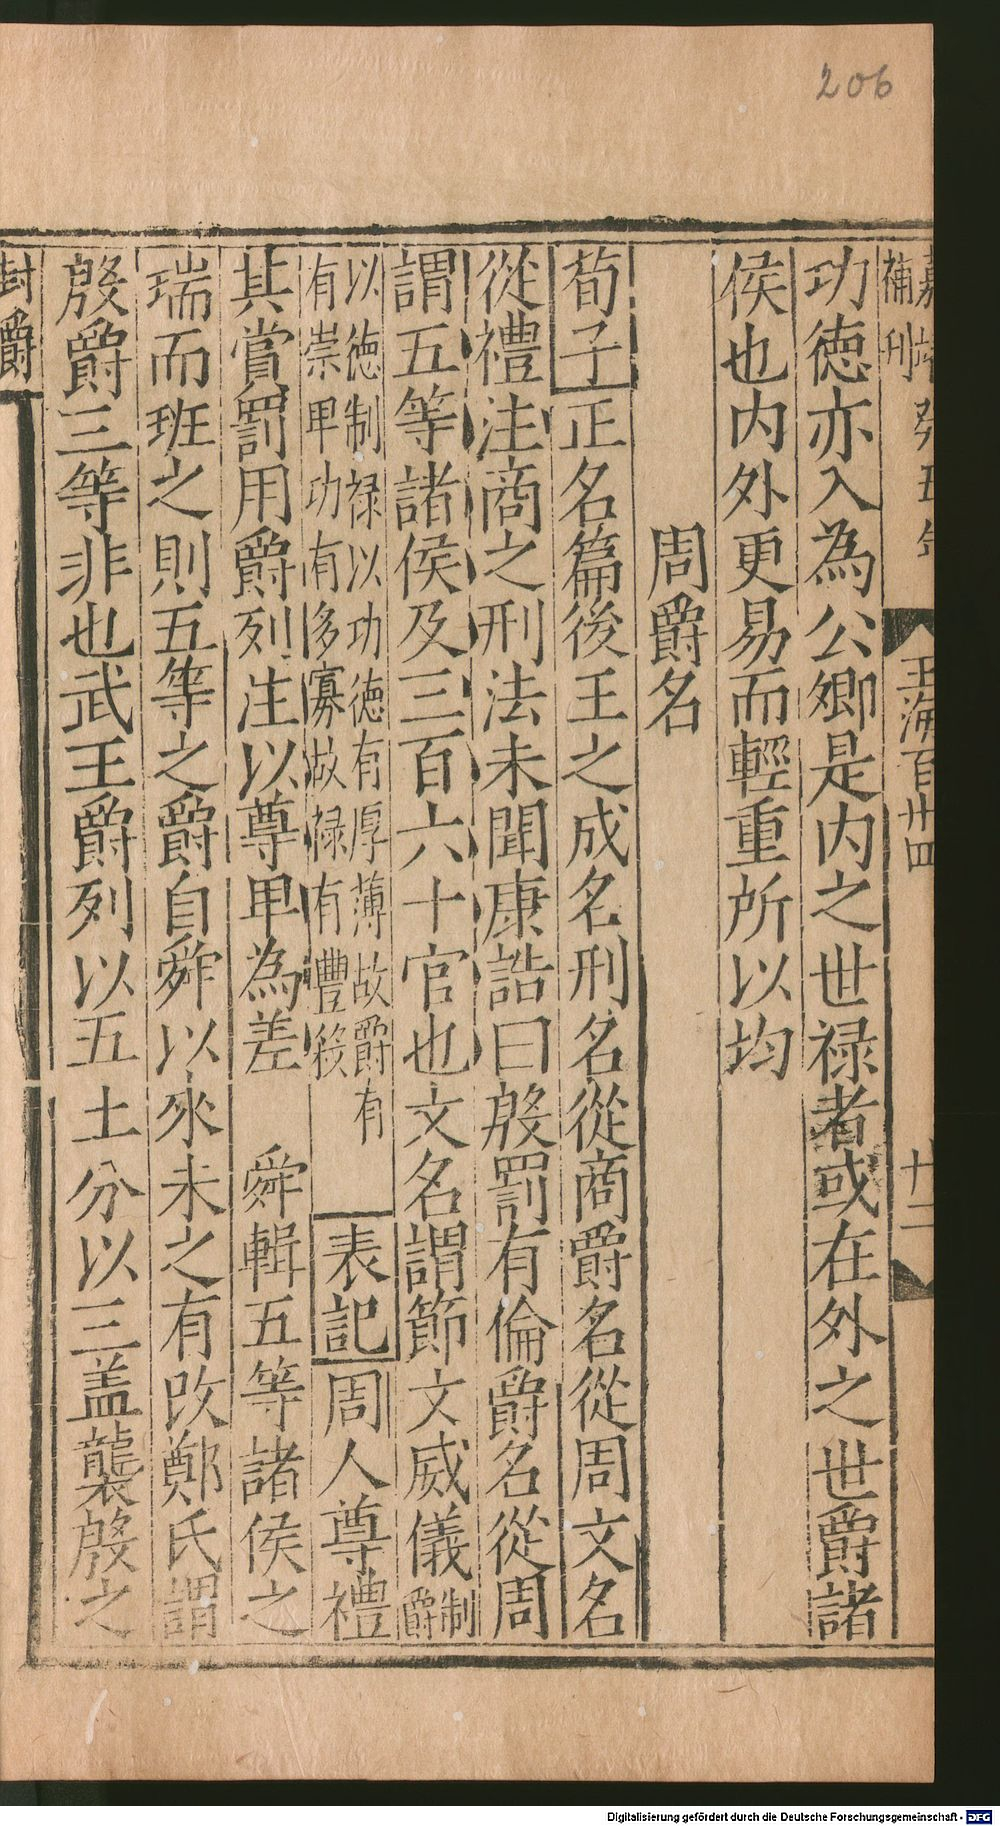 206
補刊
玉海百卅四
十二
功德亦入為公卿是内之世禄者或在外之世爵諸
侯也内外更易而輕重所以均
周爵名
荀子正名篇後王之成名刑名從商爵名從周文名
從禮注商之刑法未聞康誥曰殷罰有倫爵名從周
謂五等諸侯及三百六十官也文名謂節文威儀制爵
以德制禄以功德有厚薄故爵有
有崇卑功有多寡故禄有豐殺
表記周人尊禮
其賞罰用爵列注以尊卑為差 舜輯五等諸侯之
瑞而班之則五等之爵自舜以來未之有改鄭氏謂
殷爵三等非也武王爵列以五土分以三盖襲殷之
封爵
Digitalisierung gefördert durch die Deutsche Forschungsgemeinschaft - DFG